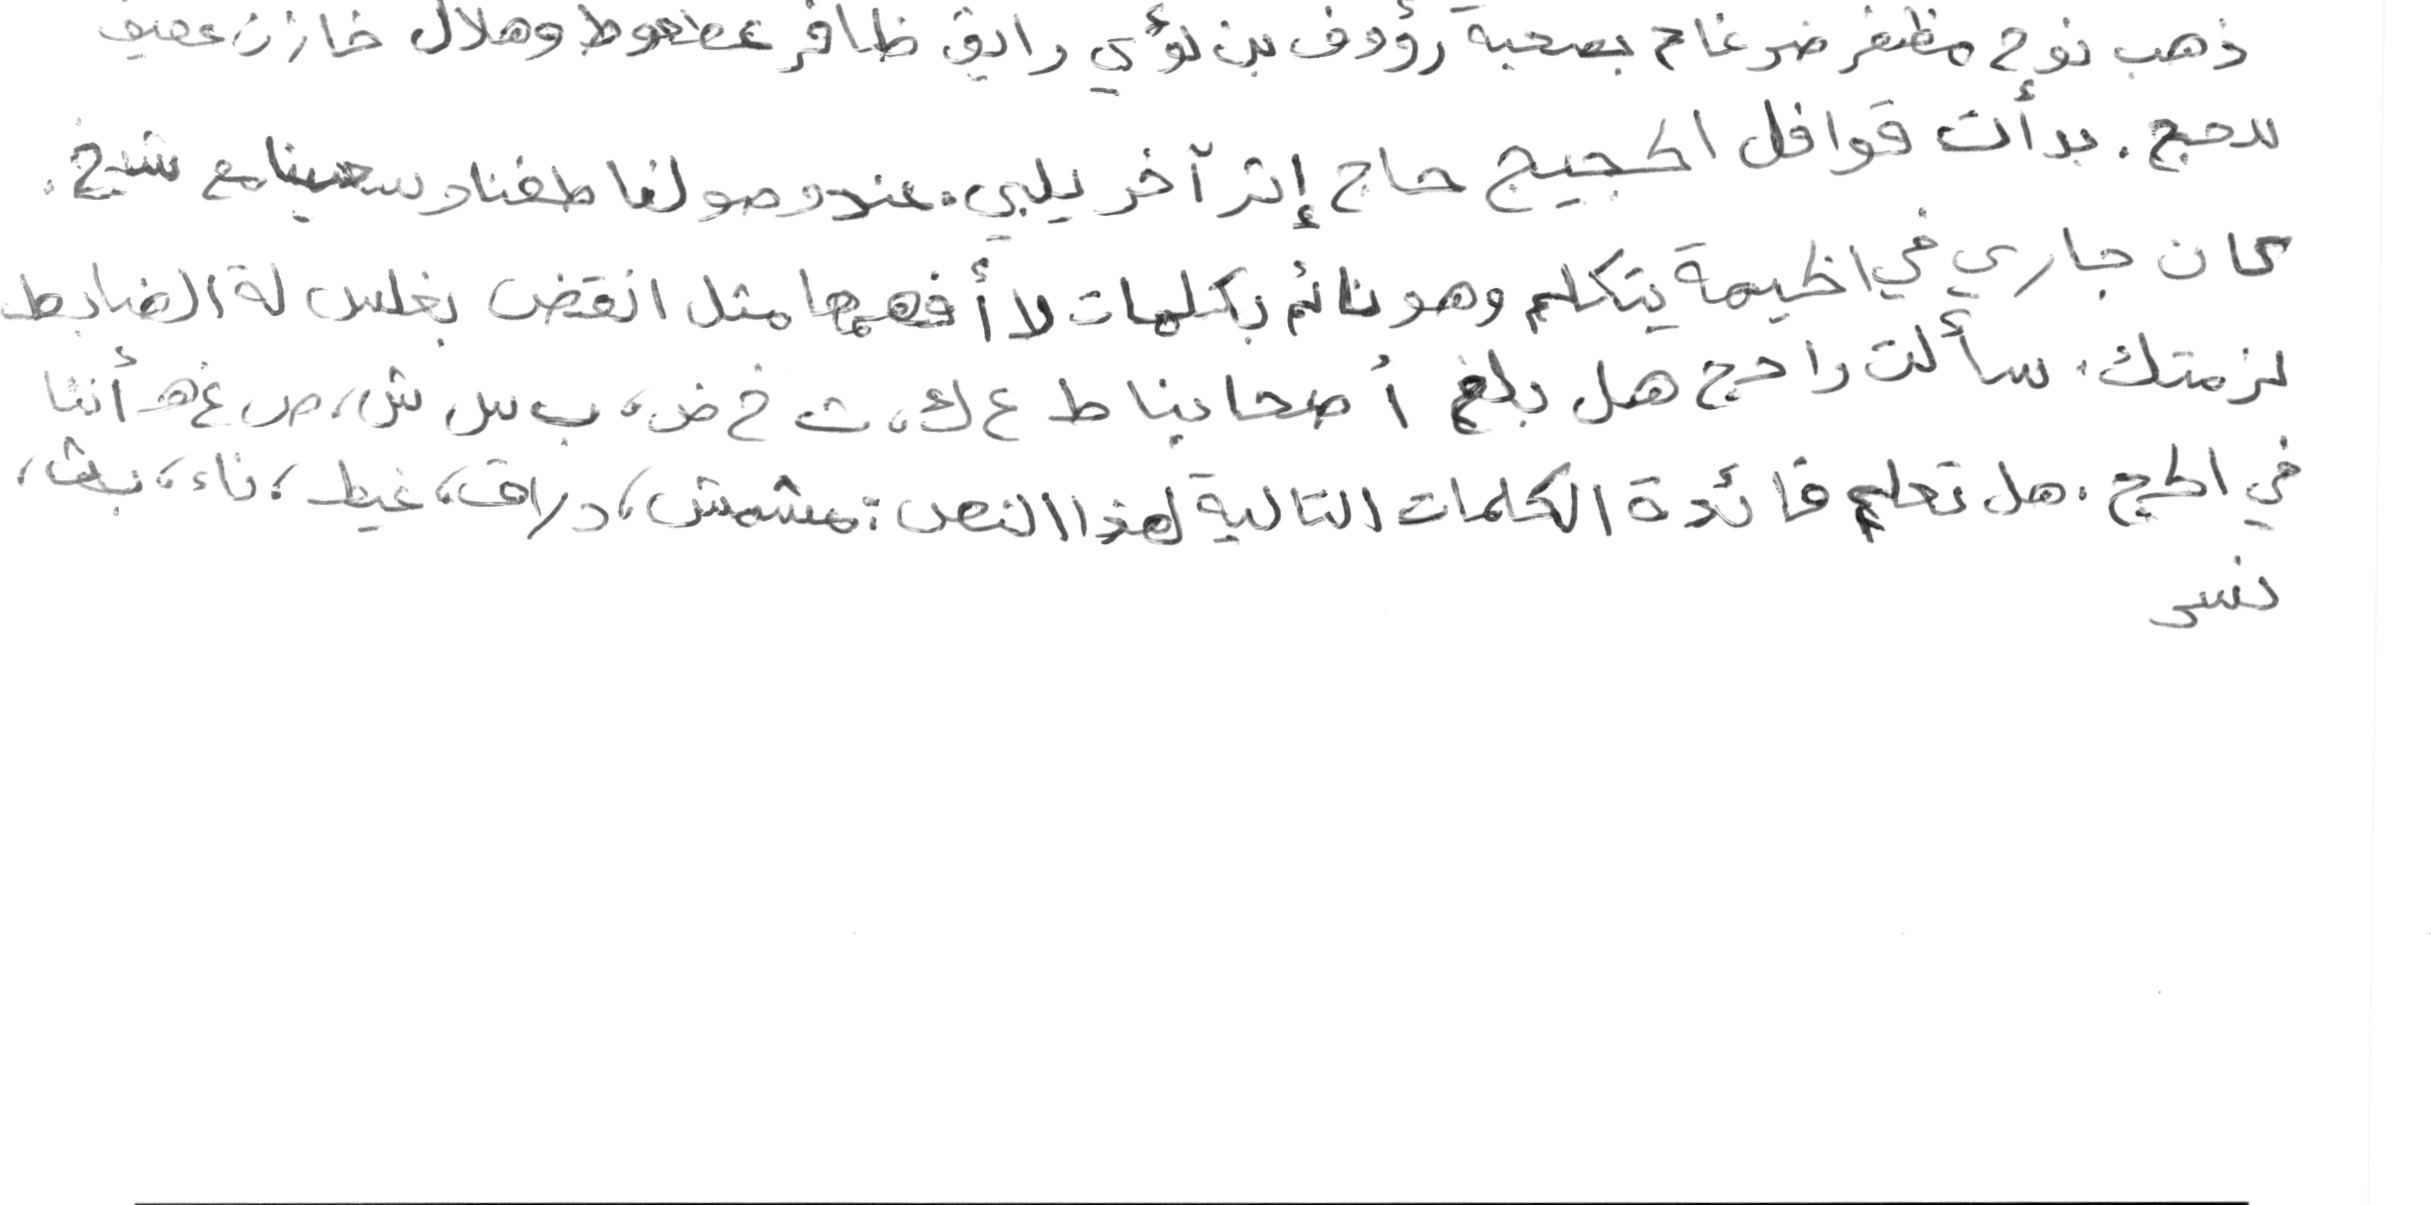 ذهب نوح مظفر ضرغاح بصحبة رؤوف بن لؤي رايق ظافر عطعوط وهلال خازن عفيف
للحج. بدأت قوافل الحجيج حاج إثر آخر يلبي. عند وصولنا طفنا وسعينا مع شيخ.
كان جاري في الخيمة يتكلم وهو نائم بكلمات لا أفهمها مثل انقض بغلس لة الضابط
لزمتك. سألت راجح هل بلغ أصحابنا ط ع ك، ت خ ض، ب س ش، ص غ هـ أننا
في الحج. هل تعلم فائدة الكلمات التالية لهذا النص: مشمش، دراق، غيظ، ناء، بث،
نسر